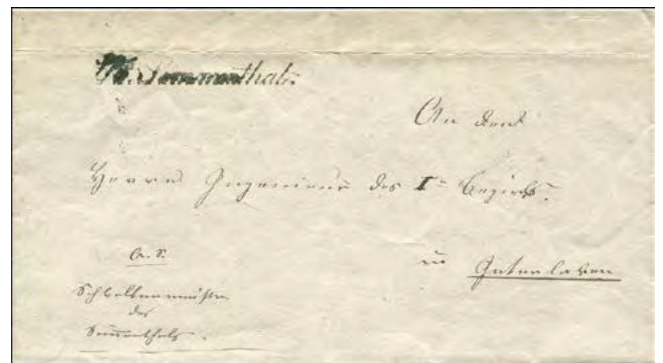 Simmenthal.
An den
Herrn Ingenieur des I.n Bezirks.
in Interlaken
A. S.
Schwellenmeister
des
Simmenthals.